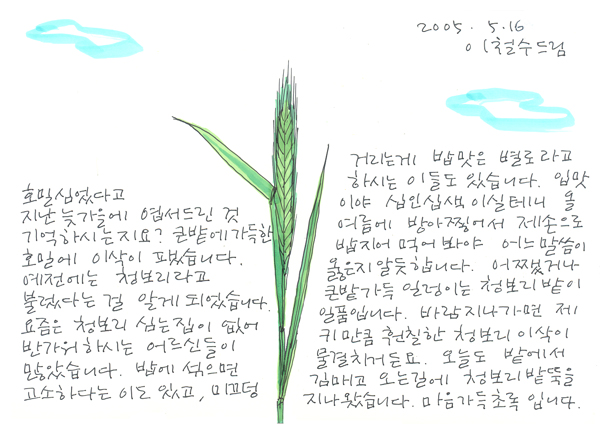 2005. 5.16
이철수드림
호밀심었다고
지난 늦가을에 엽서드린 것
기억하시는지요? 큰밭에가득한
호밀에 이삭이 패었습니다.
예전에는 청보리라고
불렀다는 걸 알게 되었습니다.
요즘은 청보리 심는집이 없어
반가워하시는 어르신들이
많았습니다. 밥에 섞으면
고소하다는 이도 있고, 미끄덩
거리는게 밥맛은 별로라고
하시는 이들도 있습니다. 입맛
이야 십인십색이실테니 올
여름에 방아찧어서 제손으로
밥지어 먹어봐야 어느말씀이
옳은지알듯합니다. 어쨌거나
큰밭가득 일렁이는 청보리밭이
일품입니다. 바람지나가면 제
키만큼 훤칠한 청보리 이삭이
물결치거든요. 오늘도 밭에서
김매고 오는길에 청보리밭둑을
지나왔습니다. 마음가득초록 입니다.